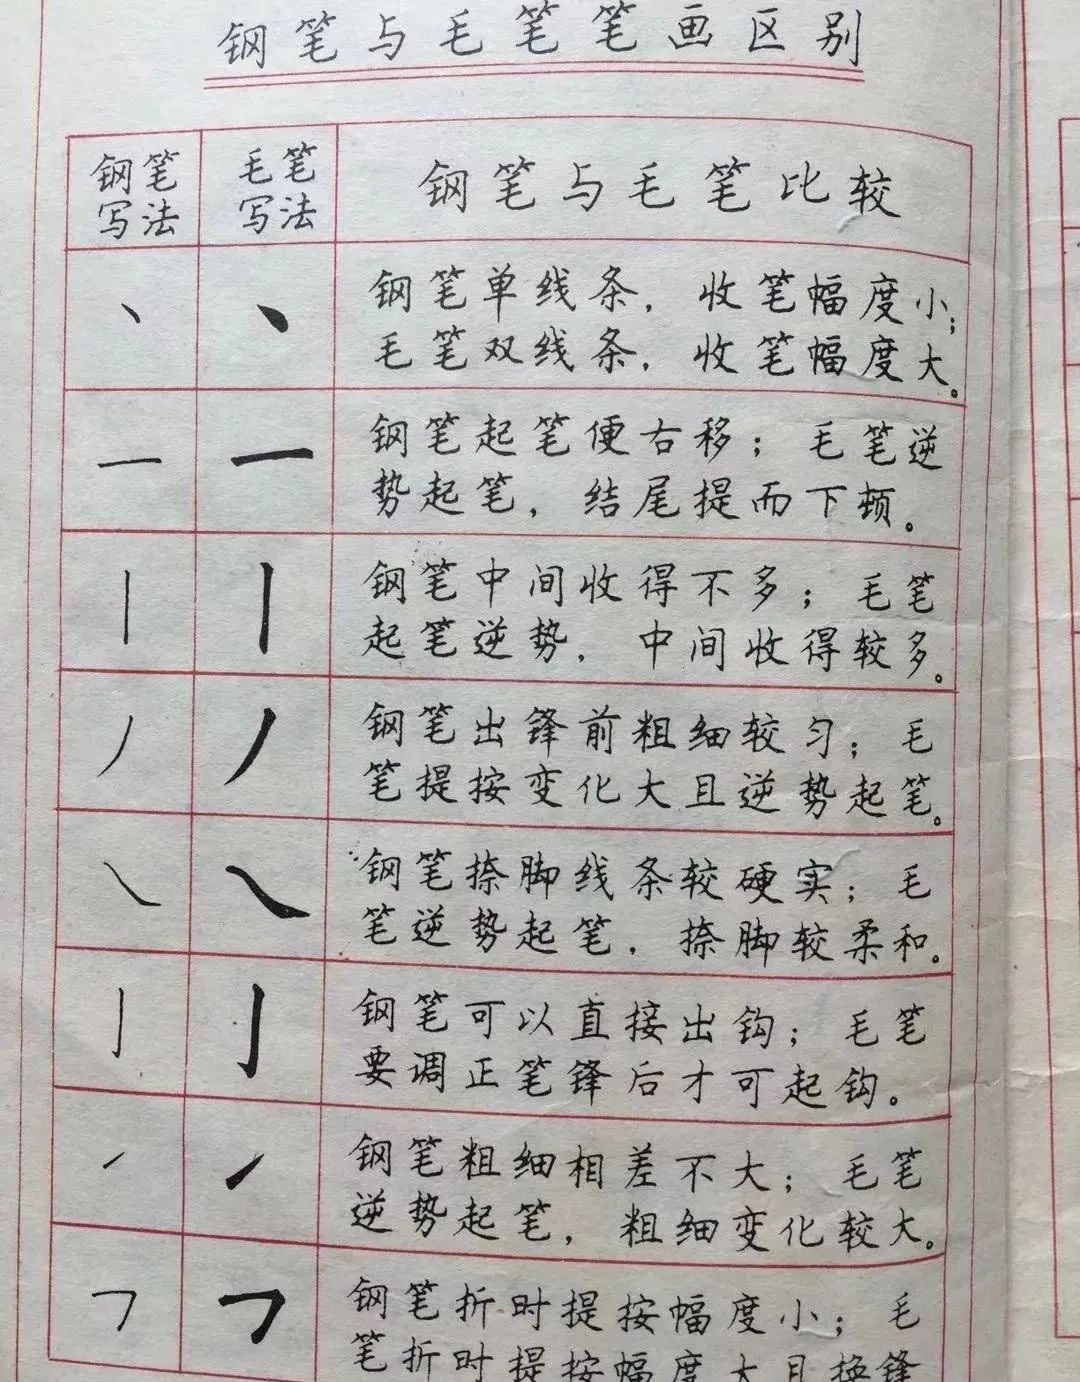 钢笔与毛笔笔画区别
钢笔
写法
毛笔
写法
钢笔与毛笔比较
钢笔单线条，收笔幅度小；
毛笔双线条，收笔幅度大。
钢笔起笔便右移；毛笔逆
势起笔，结尾提而下顿。
钢笔中间收得不多；毛笔
起笔逆势，中间收得较多。
钢笔出锋前粗细较匀；毛
笔提按变化大且逆势起笔。
钢笔捺脚线条较硬实；毛
笔逆势起笔，捺脚较柔和。
钢笔可以直接出钩；毛笔
要调正笔锋后才可起钩。
钢笔粗细相差不大；毛笔
逆势起笔，粗细变化较大。
钢笔折时提按幅度小；毛
笔折时提按幅度大且换锋